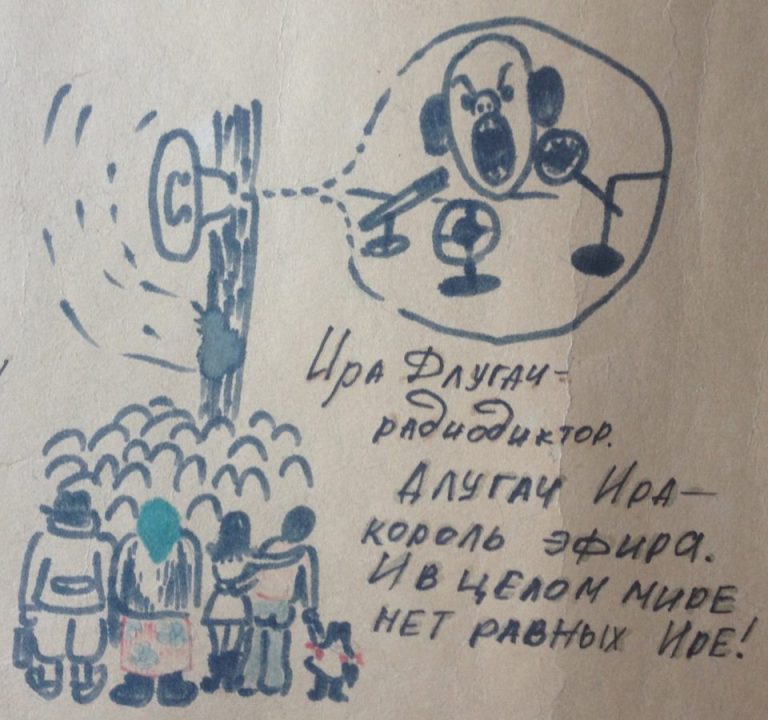 Ира Длугач-
радиодиктор.
Длугач Ира-
король эфира.
И в целом мире
нет равных Ире!